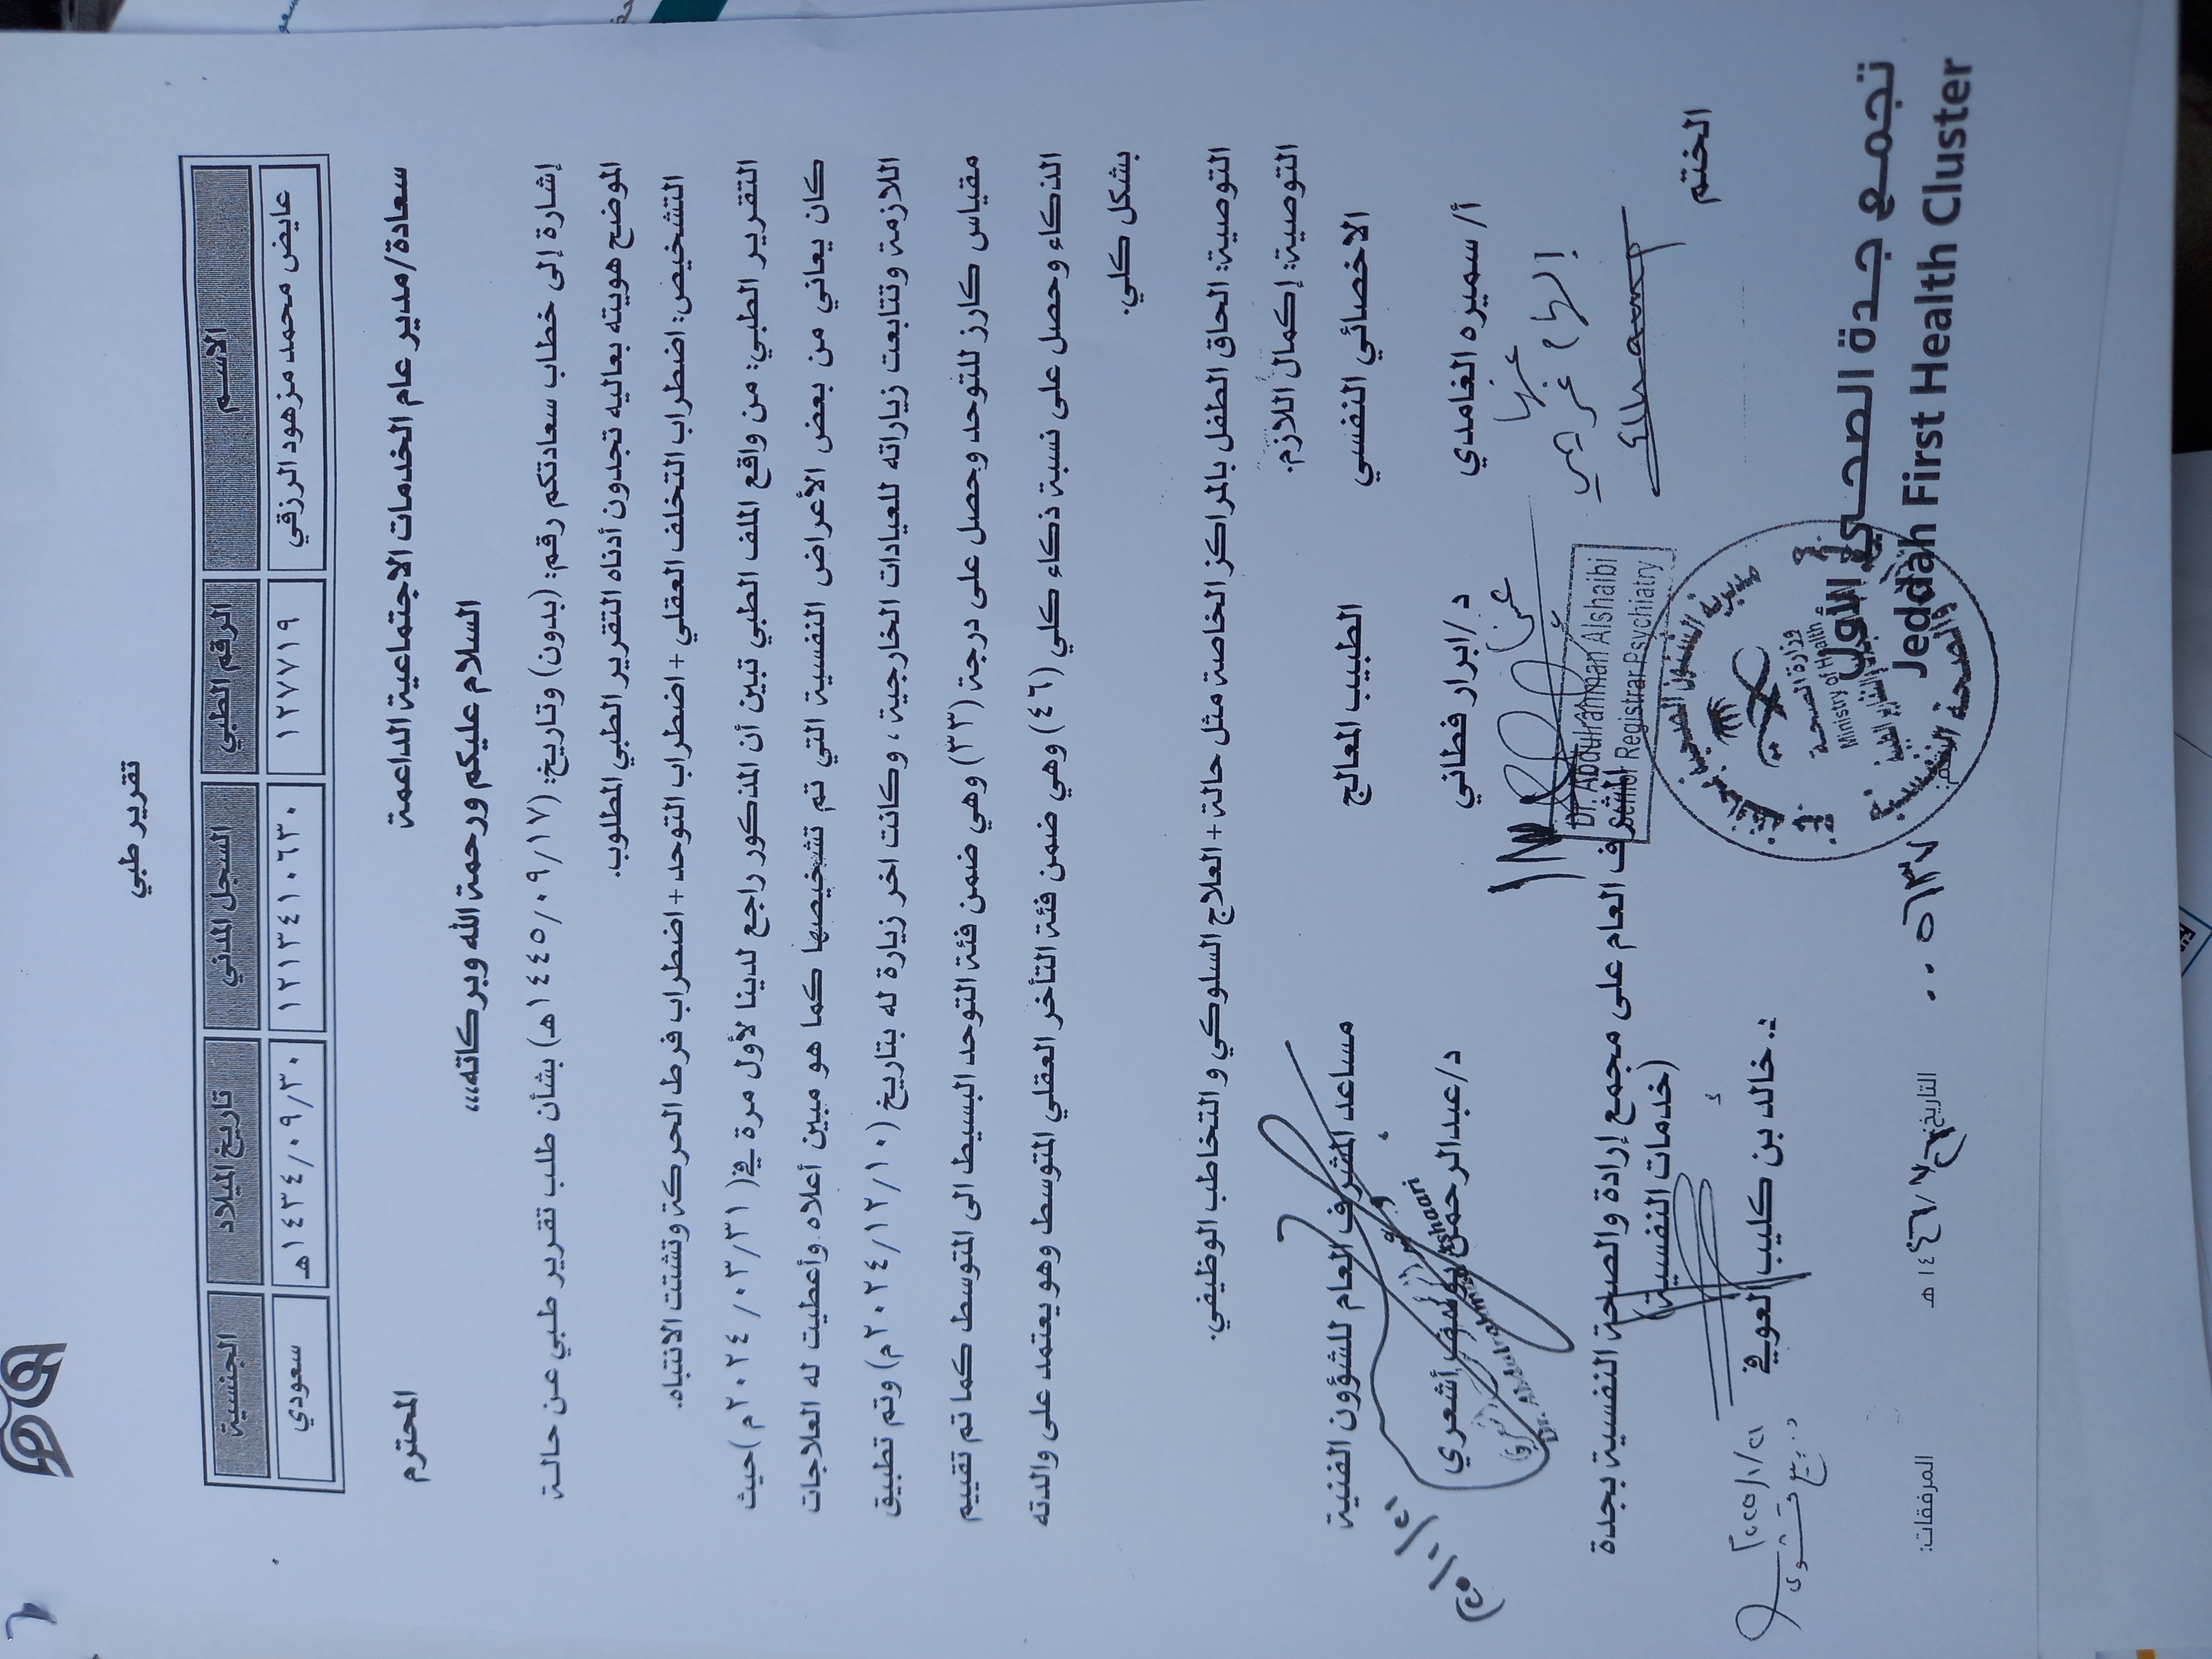 تقرير طبي
الاسم الرقم الطبي السجل المدني تاريخ الميلاد الجنسية
عايض محمد مزهود الرزقي ١٢٧٧١٩ ١٢١٣٤١٠٦٣٠ ١٤٣٤/٠٩/٣٠هـ سعودي
سعادة/مدير عام الخدمات الاجتماعية الداعمة المحترم
السلام عليكم ورحمة الله وبركاته،،،
إشارة إلى خطاب سعادتكم رقم: (بدون) وتاريخ: (١٤٤٥/٠٩/١٧هـ) بشأن طلب تقرير طبي عن حالة
الموضح هويته بعاليه تجدون أدناه التقرير الطبي المطلوب.
التشخيص: اضطراب التخلف العقلي + اضطراب التوحد + اضطراب فرط الحركة وتشتت الانتباه.
التقرير الطبي: من واقع الملف الطبي تبين أن المذكور راجع لدينا لأول مرة في (٢٠٢٤/٠٣/٣١م) حيث
كان يعاني من بعض الأعراض النفسية التي تم تشخيصها كما هو مبين أعلاه وأعطيت له العلاجات
اللازمة وتتابعت زياراته للعيادات الخارجية، وكانت اخر زيارة له بتاريخ (٢٠٢٤/١٢/١٠م) وتم تطبيق
مقياس كارز للتوحد وحصل على درجة (٣٣) وهي ضمن فئة التوحد البسيط الى المتوسط كما تم تقييم
الذكاء وحصل على نسبة ذكاء كلي (٤٦) وهي ضمن فئة التأخر العقلي المتوسط وهو يعتمد على والدته
بشكل كلي.
التوصية: الحاق الطفل بالمراكز الخاصة مثل حالة + العلاج السلوكي و التخاطب الوظيفي.
التوصية: إكمال اللازم.
الاخصائي النفسي الطبيب المعالج مساعد المشرف العام للشؤون الفنية
أ/ سميره الغامدي د/ابرار فطاني د/عبدالرحمن يوسف أشعري
Dr. Abdulrahman Alshaibi
Senior Registrar Psychiatry
المشرف العام على مجمع إرادة والصحة النفسية بجدة
(خدمات النفسية)
الختم
د. خالد بن كليب العوفي
٢٠٢٥/١/٢١
وزارة الصحة
Ministry of Health
تجمع جدة الصحي الأول
Jeddah First Health Cluster
التاريخ: ١٤٤٦ هـ المرفقات: